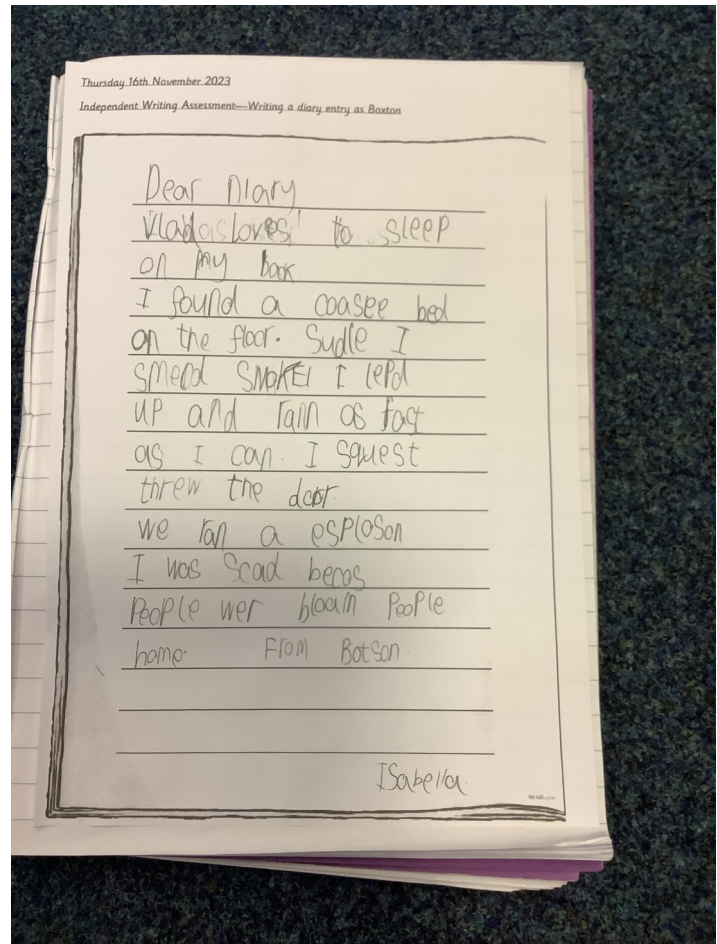 Thursday 16th November 2023
Independent Writing Assessment—Writing a diary entry as Boxton
Dear Diary
Vlad loves to sleep
on my back
I found a coasee bed
on the floor. Sudle I
smerd SMOKE! I lepd
up and rann as fast
as I can. I squest
threw the door.
we ran a esploson
I was Scad becos
People wer bloain People
home. From Botson.
Isabella